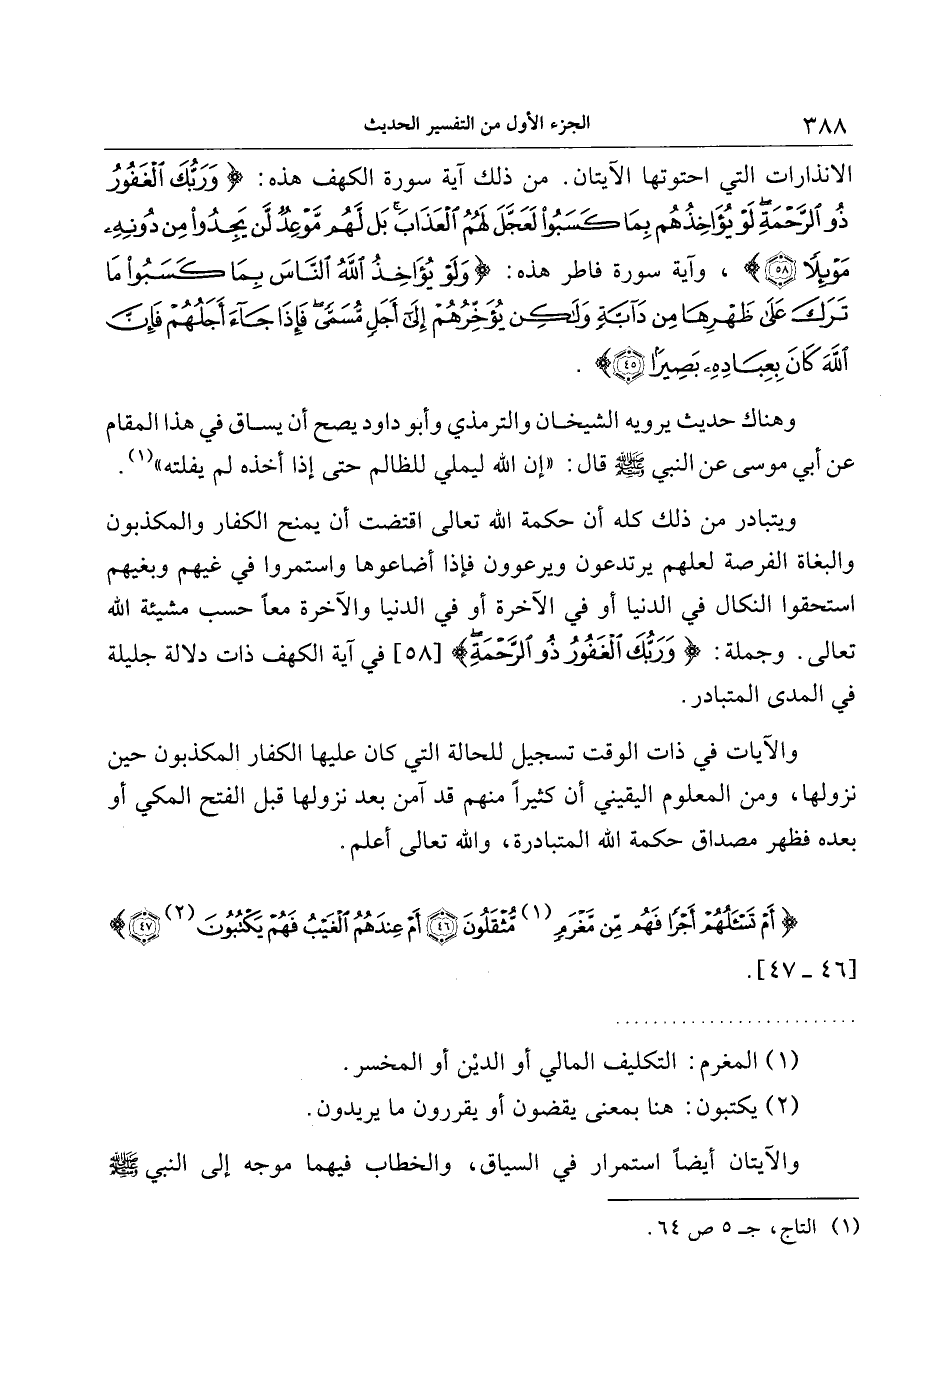 ٣٨٨ الجزء الأول من التفسير الحديث
الانذارات التي احتوتها الآيتان. من ذلك آية سورة الكهف هذه: ﴿ وَرَبُّكَ ٱلْغَفُورُ
ذُو ٱلرَّحْمَةِۖ لَوْ يُؤَاخِذُهُم بِمَا كَسَبُوا۟ لَعَجَّلَ لَهُمُ ٱلْعَذَابَۚ بَل لَّهُم مَّوْعِدٌ لَّن يَجِدُوا۟ مِن دُونِهِۦ
مَوْئِلًا ٥٨﴾ ، وآية سورة فاطر هذه: ﴿وَلَوْ يُؤَاخِذُ ٱللَّهُ ٱلنَّاسَ بِمَا كَسَبُوا۟ مَا
تَرَكَ عَلَىٰ ظَهْرِهَا مِن دَآبَّةٍ وَلَـٰكِن يُؤَخِّرُهُمْ إِلَىٰٓ أَجَلٍ مُّسَمًّىۖ فَإِذَا جَآءَ أَجَلُهُمْ فَإِنَّ
ٱللَّهَ كَانَ بِعِبَادِهِۦ بَصِيرًۢا ٤٥﴾ .
وهناك حديث يرويه الشيخان والترمذي وأبو داود يصح أن يساق في هذا المقام
عن أبي موسى عن النبي ﷺ قال: «إن الله ليملي للظالم حتى إذا أخذه لم يفلته»(١).
ويتبادر من ذلك كله أن حكمة الله تعالى اقتضت أن يمنح الكفار والمكذبون
والبغاة الفرصة لعلهم يرتدعون ويرعوون فإذا أضاعوها واستمروا في غيهم وبغيهم
استحقوا النكال في الدنيا أو في الآخرة أو في الدنيا والآخرة معاً حسب مشيئة الله
تعالى. وجملة: ﴿ وَرَبُّكَ ٱلْغَفُورُ ذُو ٱلرَّحْمَةِۖ﴾ [٥٨] في آية الكهف ذات دلالة جليلة
في المدى المتبادر.
والآيات في ذات الوقت تسجيل للحالة التي كان عليها الكفار المكذبون حين
نزولها، ومن المعلوم اليقيني أن كثيراً منهم قد آمن بعد نزولها قبل الفتح المكي أو
بعده فظهر مصداق حكمة الله المتبادرة، والله تعالى أعلم.
﴿ أَمْ تَسْـَٔلُهُمْ أَجْرًا فَهُم مِّن مَّغْرَمٍ (١) مُّثْقَلُونَ ٤٦ أَمْ عِندَهُمُ ٱلْغَيْبُ فَهُمْ يَكْتُبُونَ (٢) ٤٧ ﴾
[٤٦ ـ ٤٧].
. . . . . . . . . . . . . . . . . . . . . . . .
(١) المغرم: التكليف المالي أو الديْن أو المخسر.
(٢) يكتبون: هنا بمعنى يقضون أو يقررون ما يريدون.
والآيتان أيضاً استمرار في السياق، والخطاب فيهما موجه إلى النبي ﷺ
(١) التاج، جـ ٥ ص ٦٤.